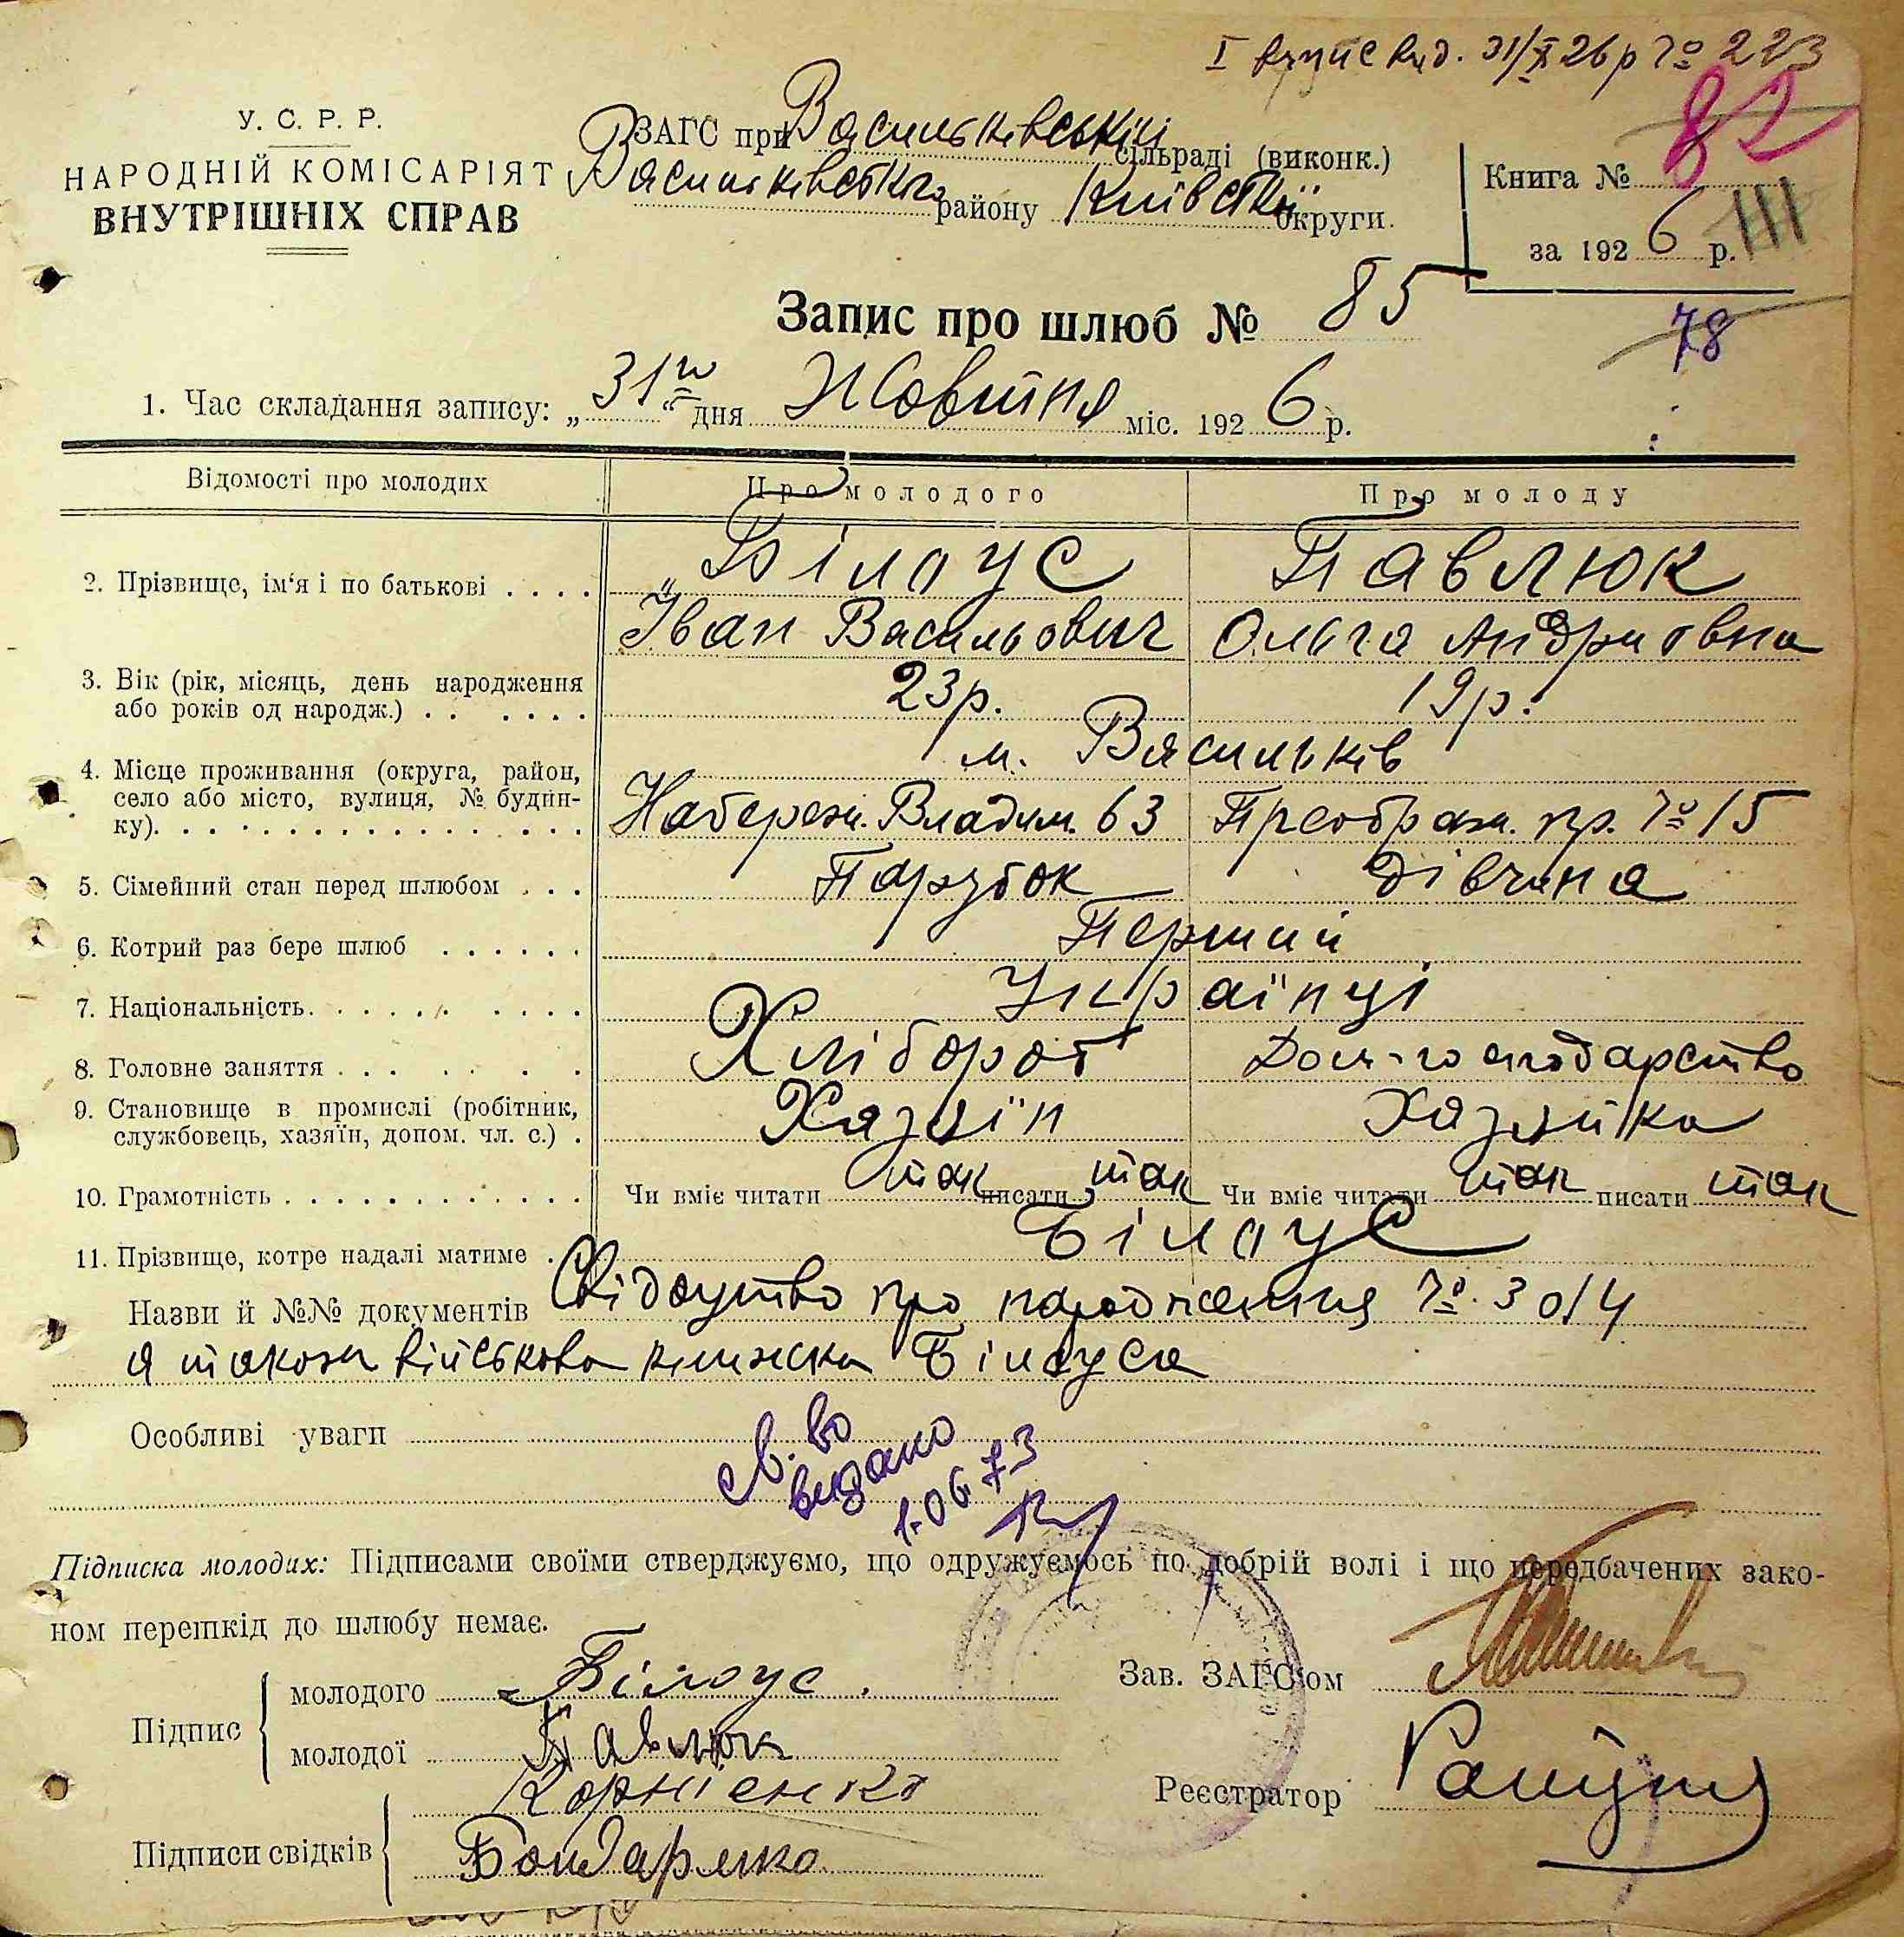 І випис вид. 31/X 26 р № 223
У. С. Р. Р.
НАРОДНІЙ КОМІСАРІЯТ
ВНУТРІШНІХ СПРАВ
ЗАГС при Васильківській сільраді (виконк.)
Васильківського району Київської округи.
82
Книга №
за 1926 р. III
Запис про шлюб № 85
78
1. Час складання запису: „31го“ дня Жовтня міс. 1926 р.
Відомості про молодих Про молодого Про молоду
2. Прізвище, ім‘я і по батькові . . . . Білоус Павлюк
Іван Васильович Ольга Андриївна
3. Вік (рік, місяць, день народження 23р. 19р.
або років од народж.) . . . . . .
м. Васильків
4. Місце проживання (округа, район,
село або місто, вулиця, № будин-
ку). . . . . . . . . . . . . . . . Набережн. Владим. 63 Преображ. пр. № 15
5. Сімейний стан перед шлюбом . . . Парубок Дівчина
6. Котрий раз бере шлюб . . . . . . Перший
7. Національність. . . . . . . . . . Українці
8. Головне заняття . . . . . . . Хлібороб Дом-господарство
9. Становище в промислі (робітник,
службовець, хазяїн, допом. чл. с.) . Хазяїн Хазяйка
10. Грамотність . . . . . . . . . . . . Чи вміє читати так писати так Чи вміє читати так писати так
11. Прізвище, котре надалі матиме . Білоус
Назви й №№ документів Свідоцтво про народження №. 3014
а також військова книжка Білоуса
Особливі уваги
св. во
видано
1.06 73
Підписка молодих: Підписами своїми стверджуємо, що одружуємось по добрій волі і що передбачених зако-
ном перешкід до шлюбу немає.
Підпис
молодого Білоус.
молодої Павлюк
Зав. ЗАГС‘ом
Реєстратор
Підписи свідків
Корнієнко
Бондаренко